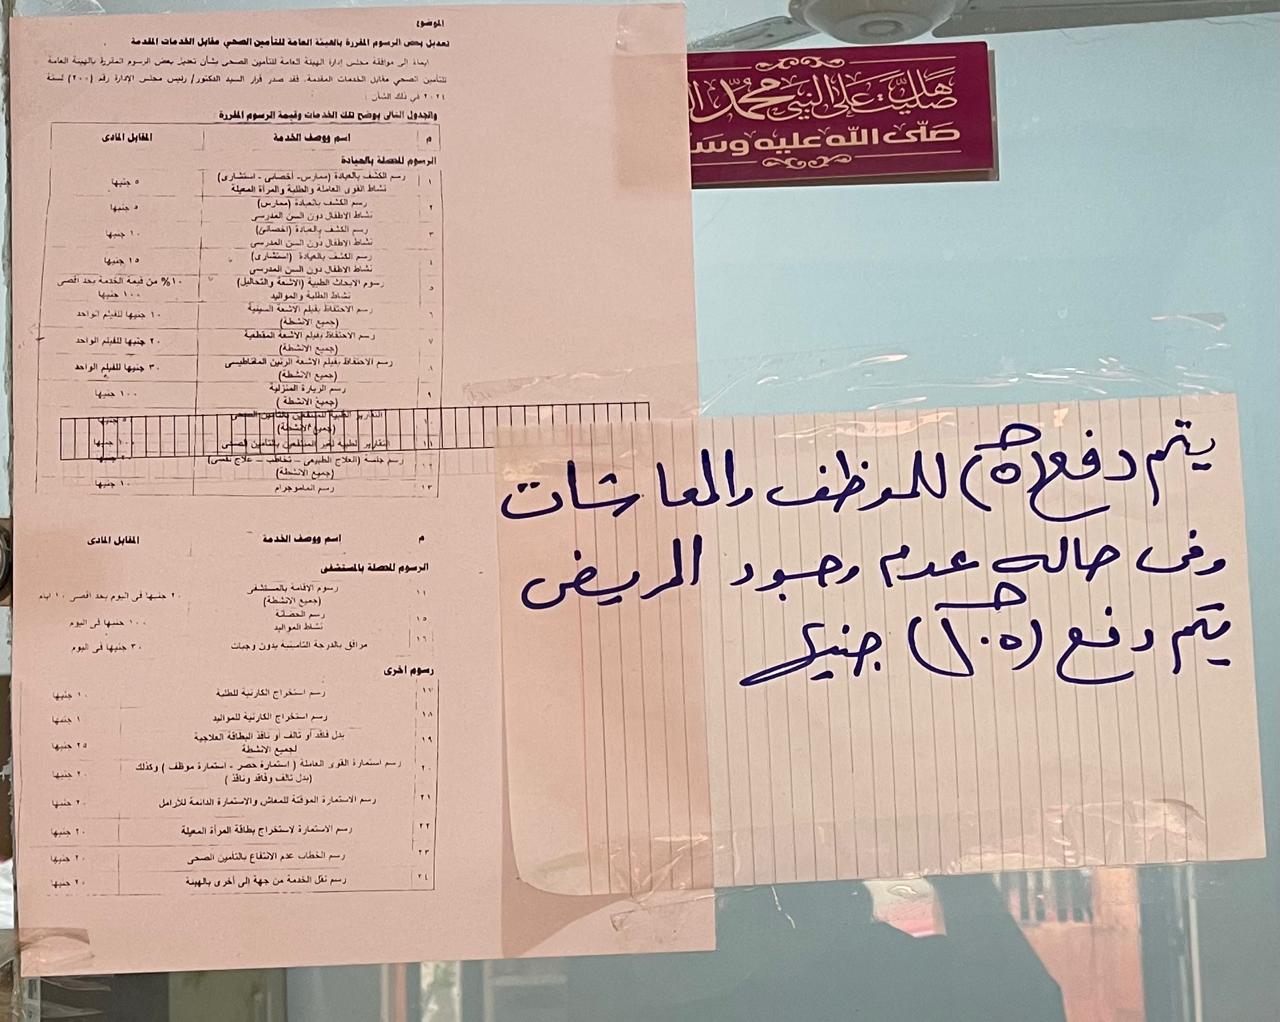 الموضوع
تعديل بعض الرسوم المقررة بالهيئة العامة للتأمين الصحي مقابل الخدمات المقدمة
ايماء الى موافقة مجلس إدارة الهيئة العامة للتأمين الصحى بشأن تعديل بعض الرسوم المقررة بالهيئة العامة
للتأمين الصحي مقابل الخدمات المقدمة، فقد صدر قرار السيد الدكتور/ رئيس مجلس الإدارة رقم (٢٠٠) لسنة
٢٠٢٤ في ذلك الشأن :
والجدول التالى يوضح تلك الخدمات وقيمة الرسوم المقررة :
م اسم ووصف الخدمة المقابل المادى
الرسوم المحصلة بالعيادة
١ رسم الكشف بالعيادة (ممارس- أخصائى - استشارى) ٥ جنيها
نشاط القوى العاملة والطلبة والمرأة المعيلة
٢ رسم الكشف بالعيادة (ممارس) ٥ جنيها
نشاط الاطفال دون السن المدرسى
٣ رسم الكشف بالعيادة (اخصائى) ١٠ جنيها
نشاط الاطفال دون السن المدرسى
٤ رسم الكشف بالعيادة (استشارى) ١٥ جنيها
نشاط الاطفال دون السن المدرسى
٥ رسوم الابحاث الطبية (الاشعة والتحاليل) ١٠% من قيمة الخدمة بحد اقصى
نشاط الطلبة والمواليد ١٠٠ جنيها
٦ رسم الاحتفاظ بفيلم الاشعة السينية ١٠ جنيها للفيلم الواحد
(جميع الانشطة)
٧ رسم الاحتفاظ بفيلم الاشعة المقطعية ٢٠ جنيها للفيلم الواحد
(جميع الانشطة)
٨ رسم الاحتفاظ بفيلم الاشعة الرنين المغناطيسى ٣٠ جنيها للفيلم الواحد
(جميع الانشطة)
٩ رسم الزيارة المنزلية ١٠٠ جنيها
(جميع الانشطة)
١٠ التقارير الطبية للمنتفعين بالتأمين الصحى جنيها
(جميع الانشطة)
١١ التقارير الطبية لغير المنتفعين بالتأمين الصحى ١٠٠ جنيها
١٢ رسم جلسة (العلاج الطبيعى - تخاطب - علاج نفسى) جنيها
(جميع الانشطة)
١٣ رسم الماموجرام ١٠ جنيها
م اسم ووصف الخدمة المقابل المادى
الرسوم المحصلة بالمستشفى
رسوم الاقامة بالمستشفى ٢٠ جنيها فى اليوم بحد اقصى ١٠ ايام
(جميع الانشطة)
١٥ رسم الحضانة ١٠٠ جنيها فى اليوم
نشاط المواليد
١٦ مرافق بالدرجة التأمينية بدون وجبات ٣٠ جنيها فى اليوم
رسوم اخرى
١٧ رسم استخراج الكارنية للطلبة ١٠ جنيها
١٨ رسم استخراج الكارنية للمواليد ١٠ جنيها
١٩ بدل فاقد أو تالف أو نافذ البطاقة العلاجية ٢٥ جنيها
لجميع الانشطة
٢٠ رسم استمارة القوى العاملة ( استمارة حصر - استمارة موظف ) وكذلك ٢٠ جنيها
(بدل تالف وفاقد ونافذ )
٢١ رسم الاستمارة الموقتة للمعاش والاستمارة الدائمة للأرامل ٢٠ جنيها
٢٢ رسم الاستمارة لاستخراج بطاقة المرأة المعيلة ٢٠ جنيها
٢٣ رسم الخطاب عدم الانتفاع بالتأمين الصحى ٢٠ جنيها
٢٤ رسم نقل الخدمة من جهة إلى أخرى بالهيئة ٢٠ جنيها
هل صليت على النبي محمد
صلى الله عليه وس
يتم دفع (٥ جـ) للموظف والمعاشات
وفى حاله عدم وجود المريض
يتم دفع جنيه